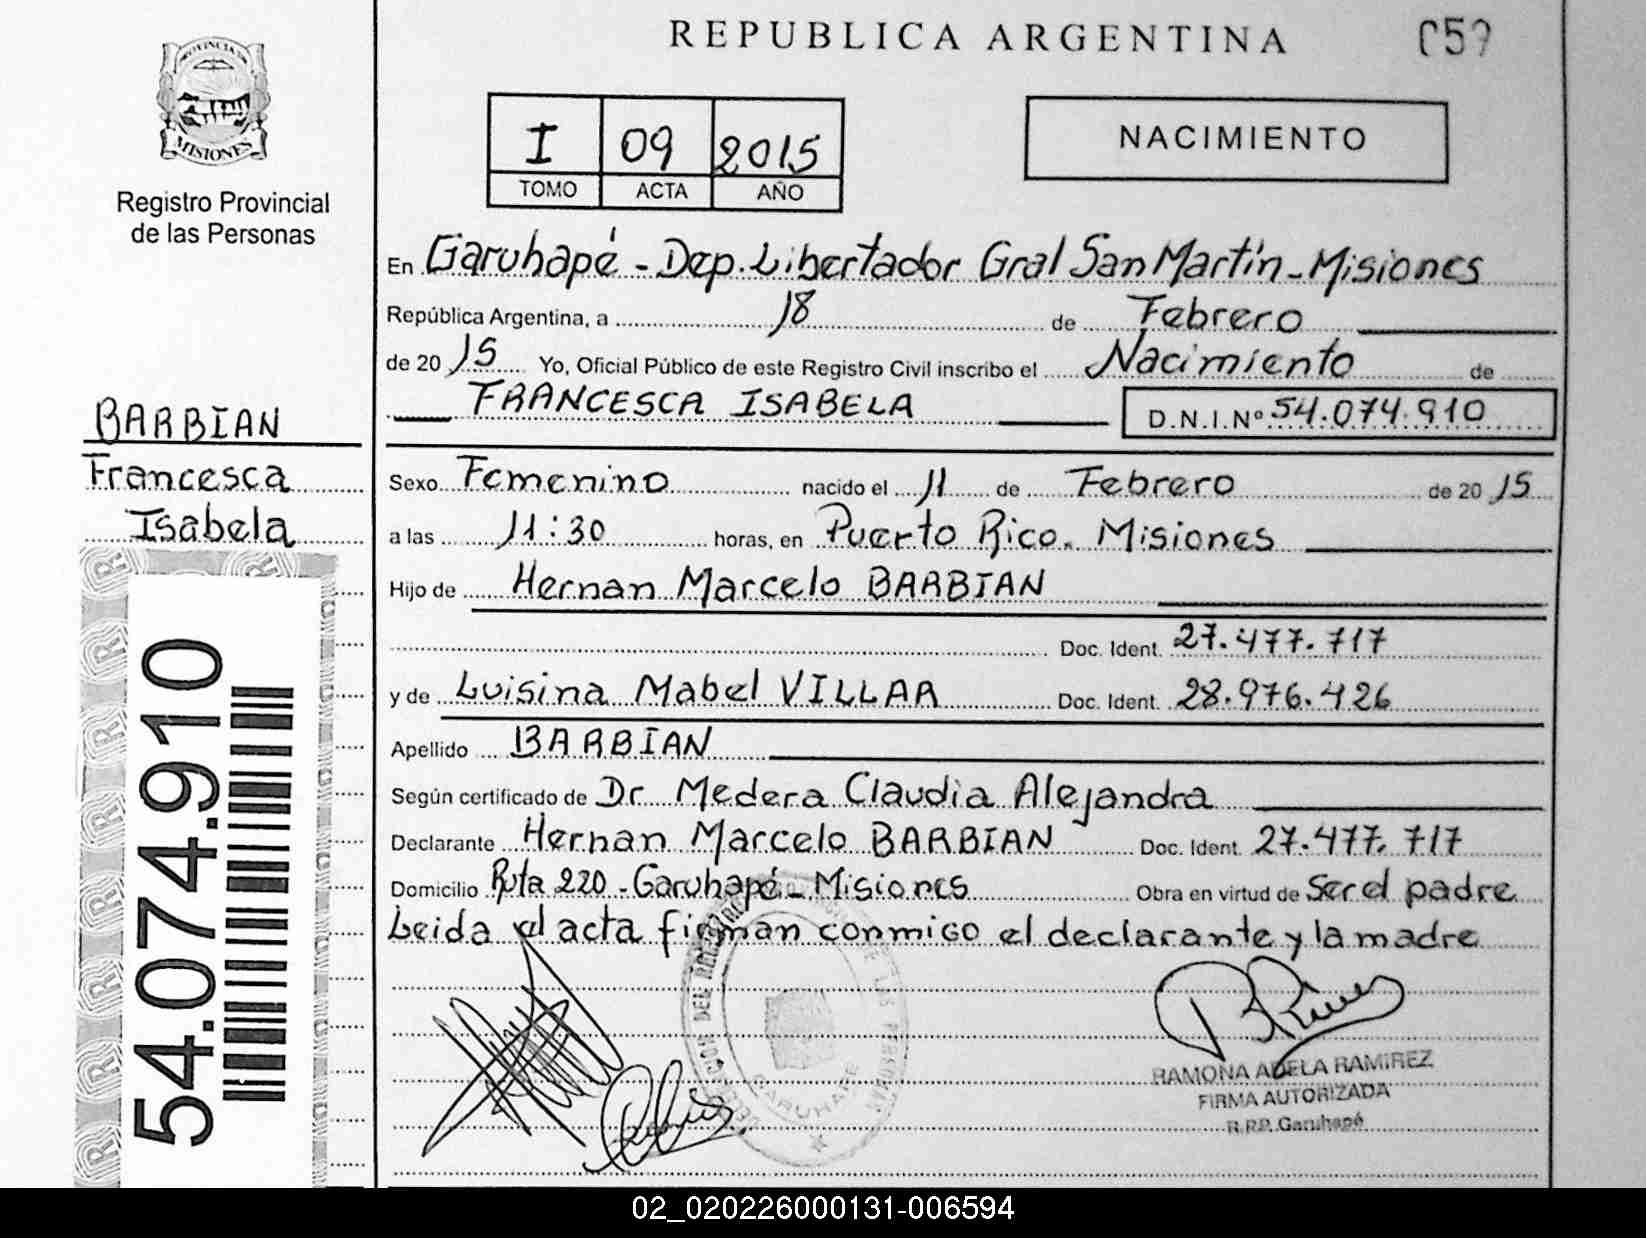 REPUBLICA ARGENTINA
PROVINCIA DE
MISIONES
Registro Provincial
de las Personas
I 09 2015
TOMO ACTA AÑO
NACIMIENTO
En Garuhapé - Dep. Libertador Gral San Martín - Misiones
República Argentina, a 18 de Febrero
de 2015 Yo, Oficial Público de este Registro Civil inscribo el Nacimiento de
FRANCESCA ISABELA D.N.I.Nº 54.074.910
BARBIAN
Francesca
Isabela
54.074.910
Sexo Femenino nacido el 11 de Febrero de 2015
a las 11:30 horas, en Puerto Rico. Misiones
Hijo de Hernan Marcelo BARBIAN
Doc. Ident. 27.477.717
y de Luisina Mabel VILLAR Doc. Ident. 28.976.426
Apellido BARBIAN
Según certificado de Dr. Medera Claudia Alejandra
Declarante Hernan Marcelo BARBIAN Doc. Ident. 27.477.717
Domicilio Ruta 220 - Garuhapé - Misiones Obra en virtud de Ser el padre
Leida el acta firman conmigo el declarante y la madre
GARUHAPE
RAMONA ADELA RAMIREZ
FIRMA AUTORIZADA
R.P.P. Garuhapé
02_020226000131-006594